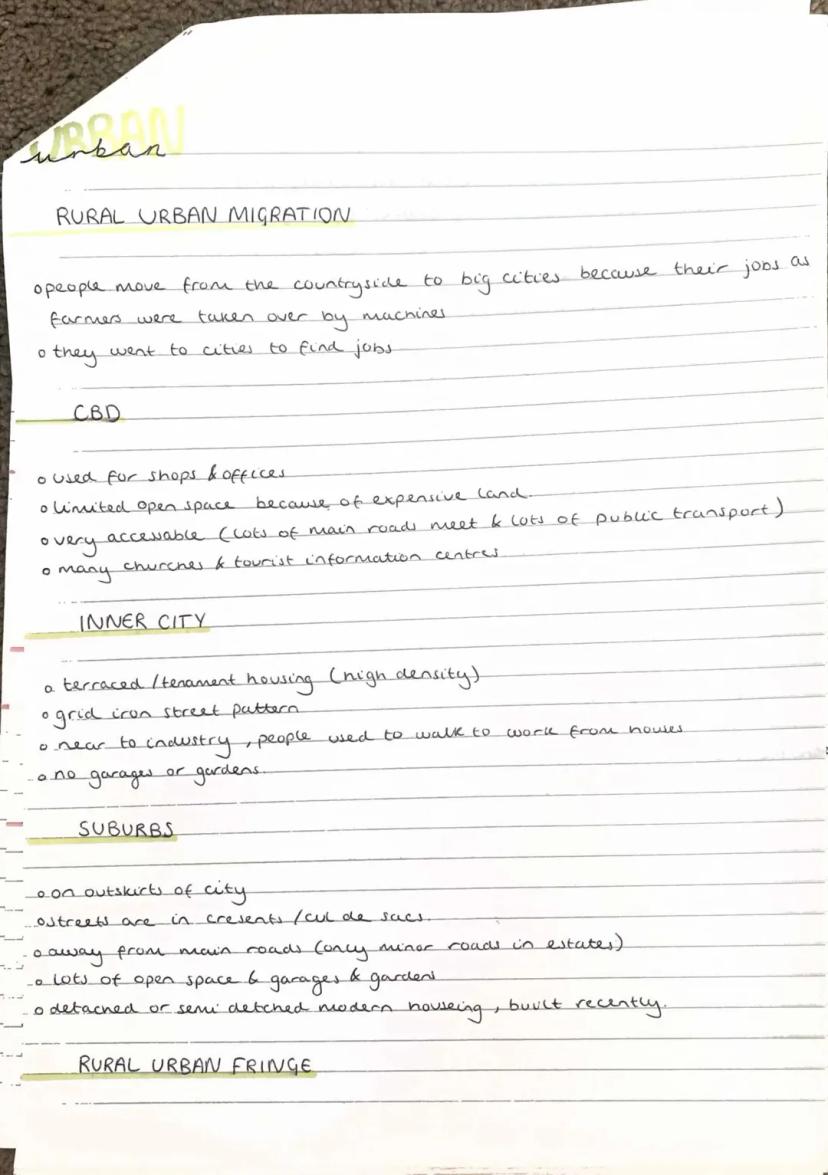 URBAN
urban
RURAL URBAN MIGRATION
o people move from the countryside to big cities because their jobs as
farmers were taken over by machines
o they went to cities to find jobs
CBD
o used for shops & offices
o limited open space because of expensive land.
o very accessable (lots of main roads meet & lots of public transport)
o many churches & tourist information centres
INNER CITY
o terraced/tenament housing (high density)
o grid iron street pattern
o near to industry, people used to walk to work from houses
o no garages or gardens.
SUBURBS
o on outskirts of city
o streets are in cresents/cul de sacs.
o away from main roads (only minor roads in estates)
o lots of open space & garages & gardens
o detached or semi detched modern houseing, built recently.
RURAL URBAN FRINGE